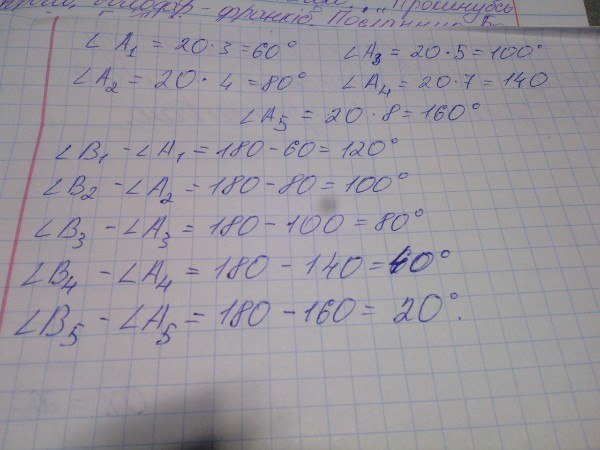 "Прокинулась
- франкіс. Посланник
∠A₁ = 20·3=60° ∠A₃ = 20·5=100°
∠A₂ = 20·4=80° ∠A₄ = 20·7=140
∠A₅ = 20·8=160°
∠B₁ - ∠A₁ = 180-60=120°
∠B₂ - ∠A₂ = 180-80=100°
∠B₃ - ∠A₃ = 180-100=80°
∠B₄ - ∠A₄ = 180-140=40°
∠B₅ - ∠A₅ = 180-160= 20°.